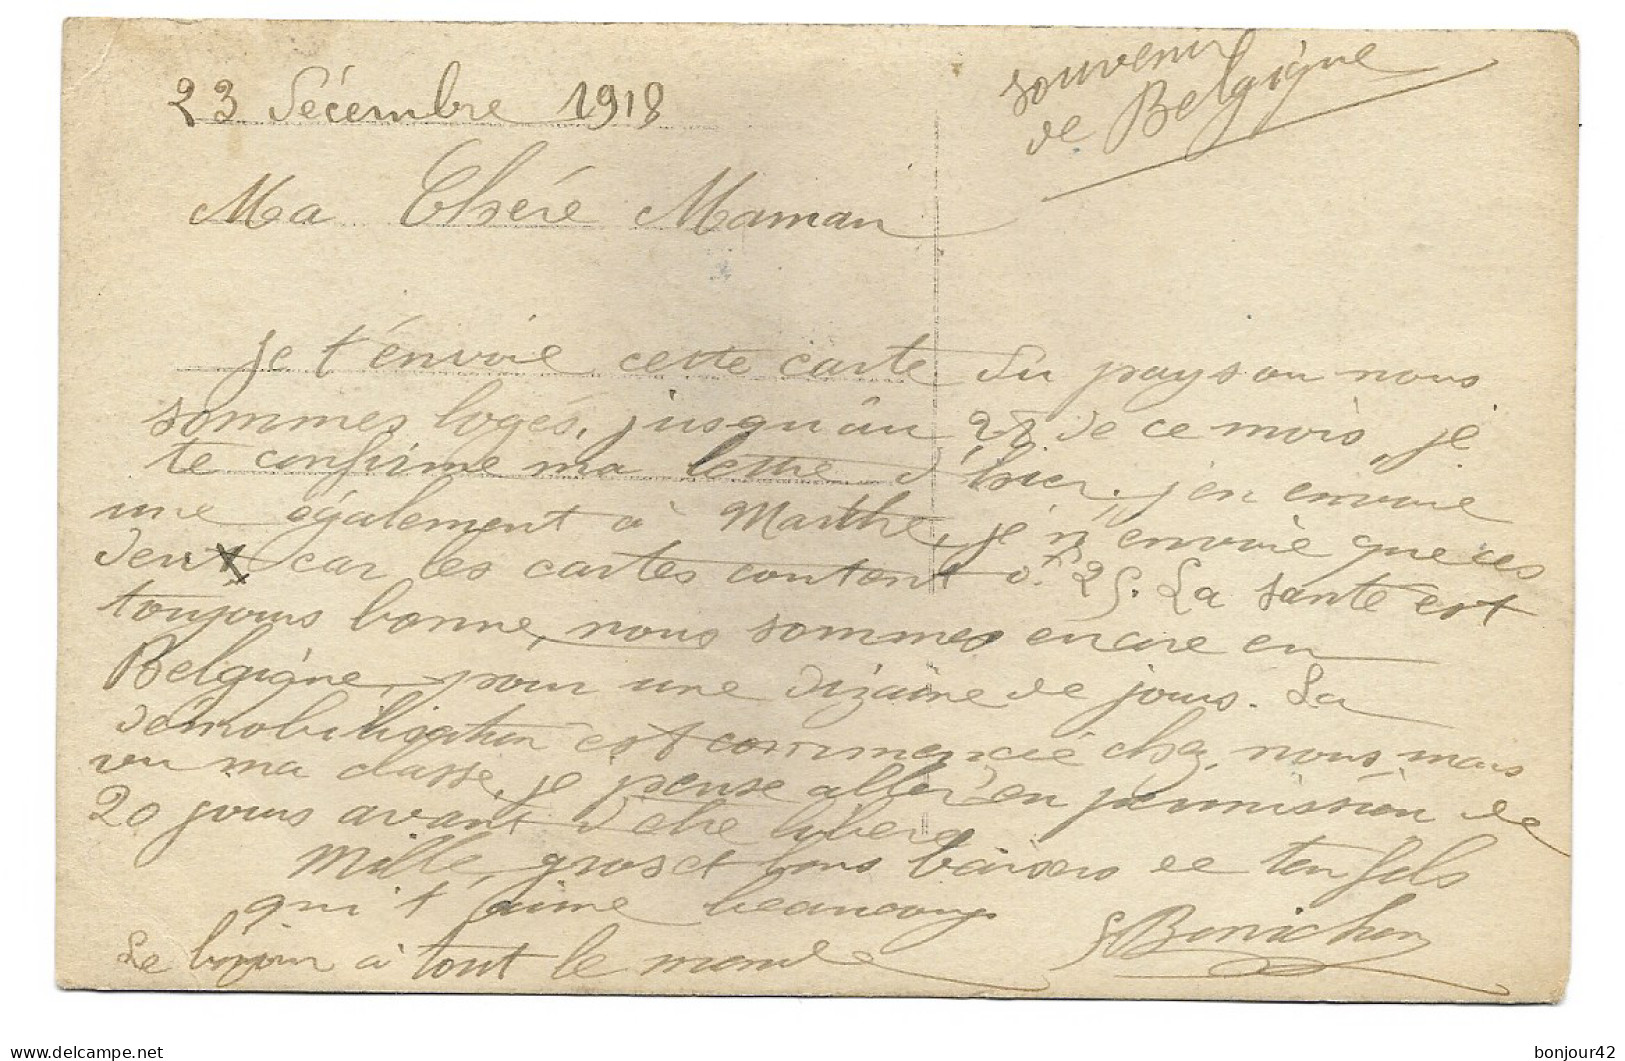 23 Décembre 1918
souvenir
de Belgique
Ma Chère Maman
Je t'envoie cette carte du pays ou nous
sommes logés, jusqu'au 28 de ce mois, je
te confirme ma lettre d'hier, j'en envoie
une également à Marthe, je n'envoie que ces
deux car les cartes coutent 0.25. La santé est
toujours bonne, nous sommes encore en
Belgique, pour une dizaine de jours. La
démobilisation est commencé chez nous mais
vu ma classe, je pense aller en permission de
20 jours avant d'etre libéré
Mille gros et bons baisers de ton fils
qui t'aime beaucoup
Le bonjour à tout le monde
Bonichon
delcampe.net
bonjour42